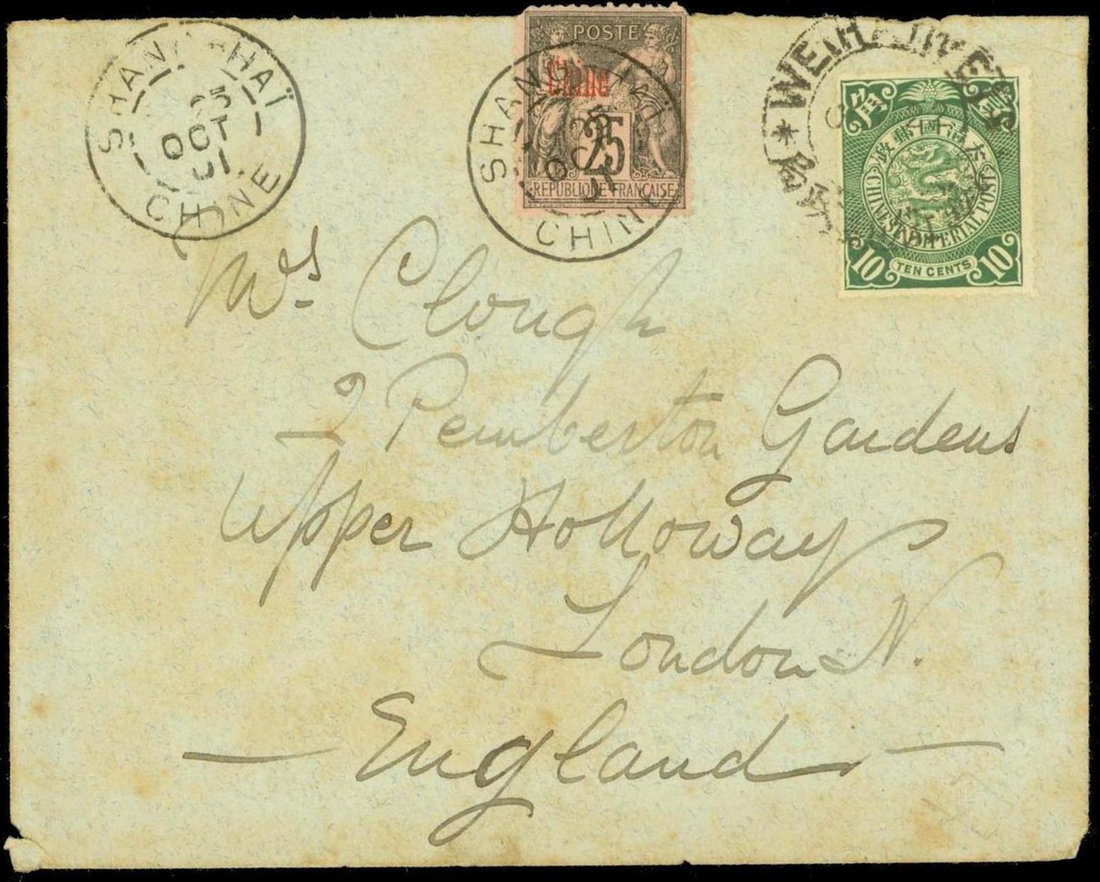 SHANG-HAÏ
25
OCT
01
CHINE
POSTE
Chine
25
REPUBLIQUE FRANÇAISE
SHANG-HAÏ
OCT
CHINE
大清國郵政
CHINESE IMPERIAL POST
10 TEN CENTS 10
Mrs Clough
2 Pemberton Gardens
Upper Holloway
London N.
England